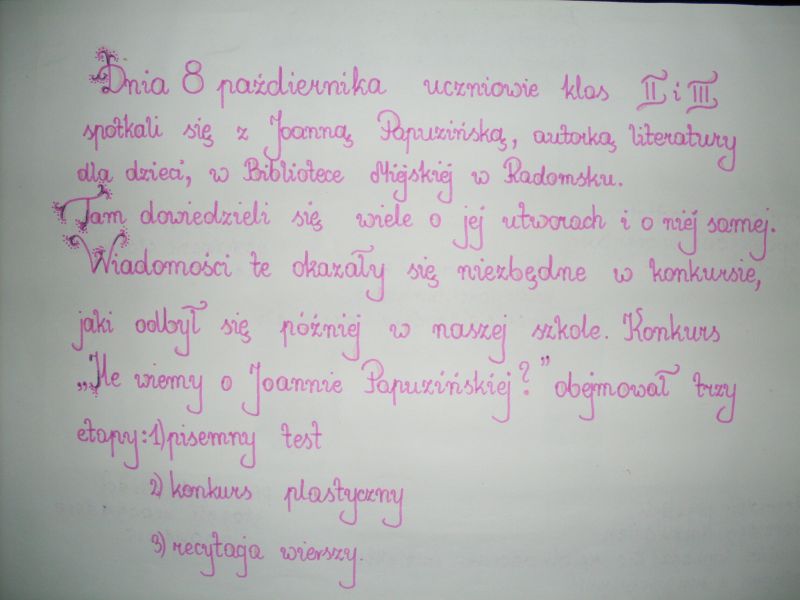 Dnia 8 października uczniowie klas II i III
spotkali się z Joanną Papuzińską, autorką literatury
dla dzieci, w Bibliotece Miejskiej w Radomsku.
Tam dowiedzieli się wiele o jej utworach i o niej samej.
Wiadomości te okazały się niezbędne w konkursie,
jaki odbył się później w naszej szkole. Konkurs
„Ile wiemy o Joannie Papuzińskiej?” obejmował trzy
etapy: 1) pisemny test
2) konkurs plastyczny
3) recytacja wierszy.